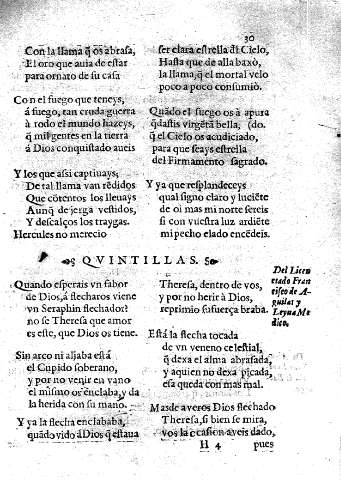 30
Con la llama q̃ os abrasa,
El oro que auia de estar
para ornato de su casa
Con el fuego que teneys,
á fuego, tan cruda guerra
à todo el mundo hazeys,
q̃ mil gentes en la tierra
á Dios conquistado aueis
Y los que assi captiuays;
De tal llama van rẽdidos
Que cõtentos los lleuays
Aunq̃ de jerga vestidos,
Y descalços los traygas.
Hercules no merecio
ser clara estrella dl Cielo,
Hasta que de alla baxò,
la llama, q̃ el mortal velo
poco a poco consumiò.
Quãdo el fuego os à apura
q̃dastis virgẽ tã bella, (do.
q̃ el Cielo os acudiciado,
para que seays estrella
del Firmamento sagrado.
Y ya que resplandeceys
qual signo claro y luciẽte
de oi mas mi norte sereis
si con vuestra luz ardiẽte
mi pecho elado encẽdeis.
QVINTILLAS.
Del Licen
ciado Fran
cisco de A-
guilar y
Leyua Me
dico.
Quando esperais vn fabor
de Dios, á flecharos viene
vn Seraphin flechador?
no se Theresa que amor
es este, que Dios os tiene.
Sin arco ni aljaba està
el Cupido soberano,
y por no venir en vano
el mismo os enclaba, y da
la herida con su mano.
Y ya la flecha enclababa,
quãdo vido á Dios q̃ estaua
Theresa, dentro de vos,
y por no herir à Dios,
reprimio su fuerça braba.
Està la flecha tocada
de vn veneno celestial,
q̃ dexa el alma abrasada,
y aquien no dexa picada,
esa queda con mas mal.
Mas de averos Dios flechado
Theresa, si bien se mira,
vos la ocasion aveis dado,
H 4 pues